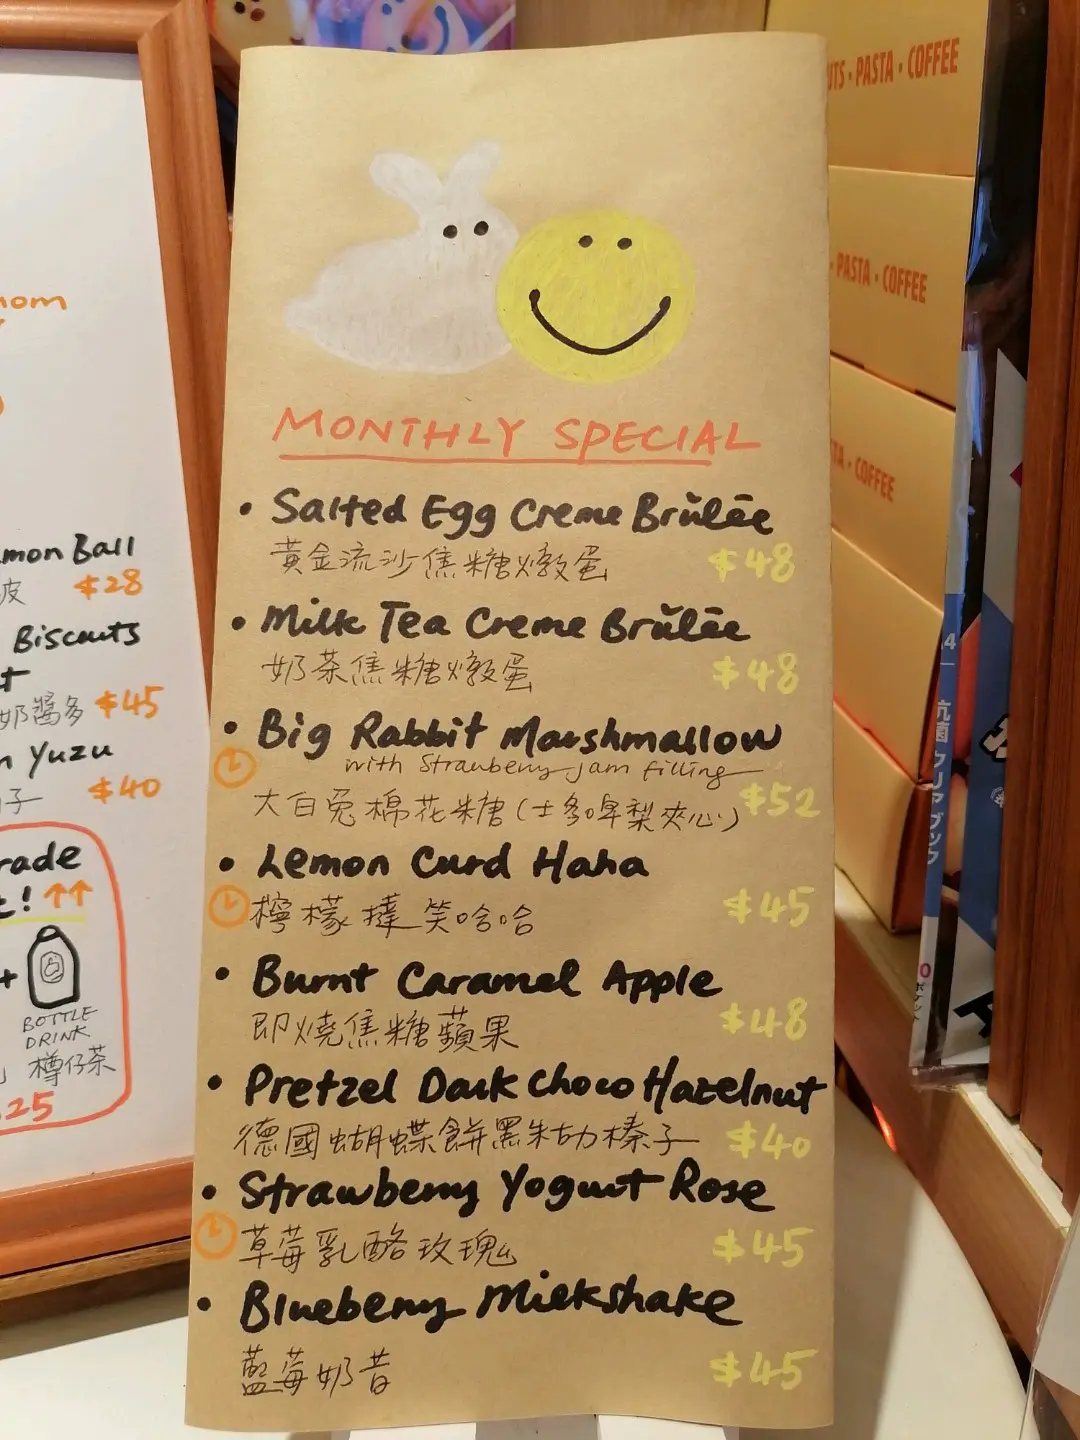 MONTHLY SPECIAL
• Salted Egg Creme Brŭlēe
黃金流沙焦糖燉蛋 $48
• Milk Tea Creme Brŭlēe
奶茶焦糖燉蛋 $48
• Big Rabbit Marshmallow
with Strawberry jam filling
大白兎棉花糖(士多啤梨夾心) $52
• Lemon Curd Haha
檸檬撻笑哈哈 $45
• Burnt Caramel Apple
即燒焦糖蘋果 $48
• Pretzel Dark Choco Hazelnut
德國蝴蝶餅黑朱古力榛子 $40
• Strawberry Yogurt Rose
草莓乳酪玫瑰 $45
• Blueberry Milkshake
藍莓奶昔 $45
mon Ball
波 $28
Biscuits
奶醬多 $45
Yuzu
子 $40
rade
! ↑↑
+
BOTTLE
DRINK
樽仔茶
25
UTS · PASTA · COFFEE
· PASTA · COFFEE
TA · COFFEE
4
抗菌 クリアブック
ポケット